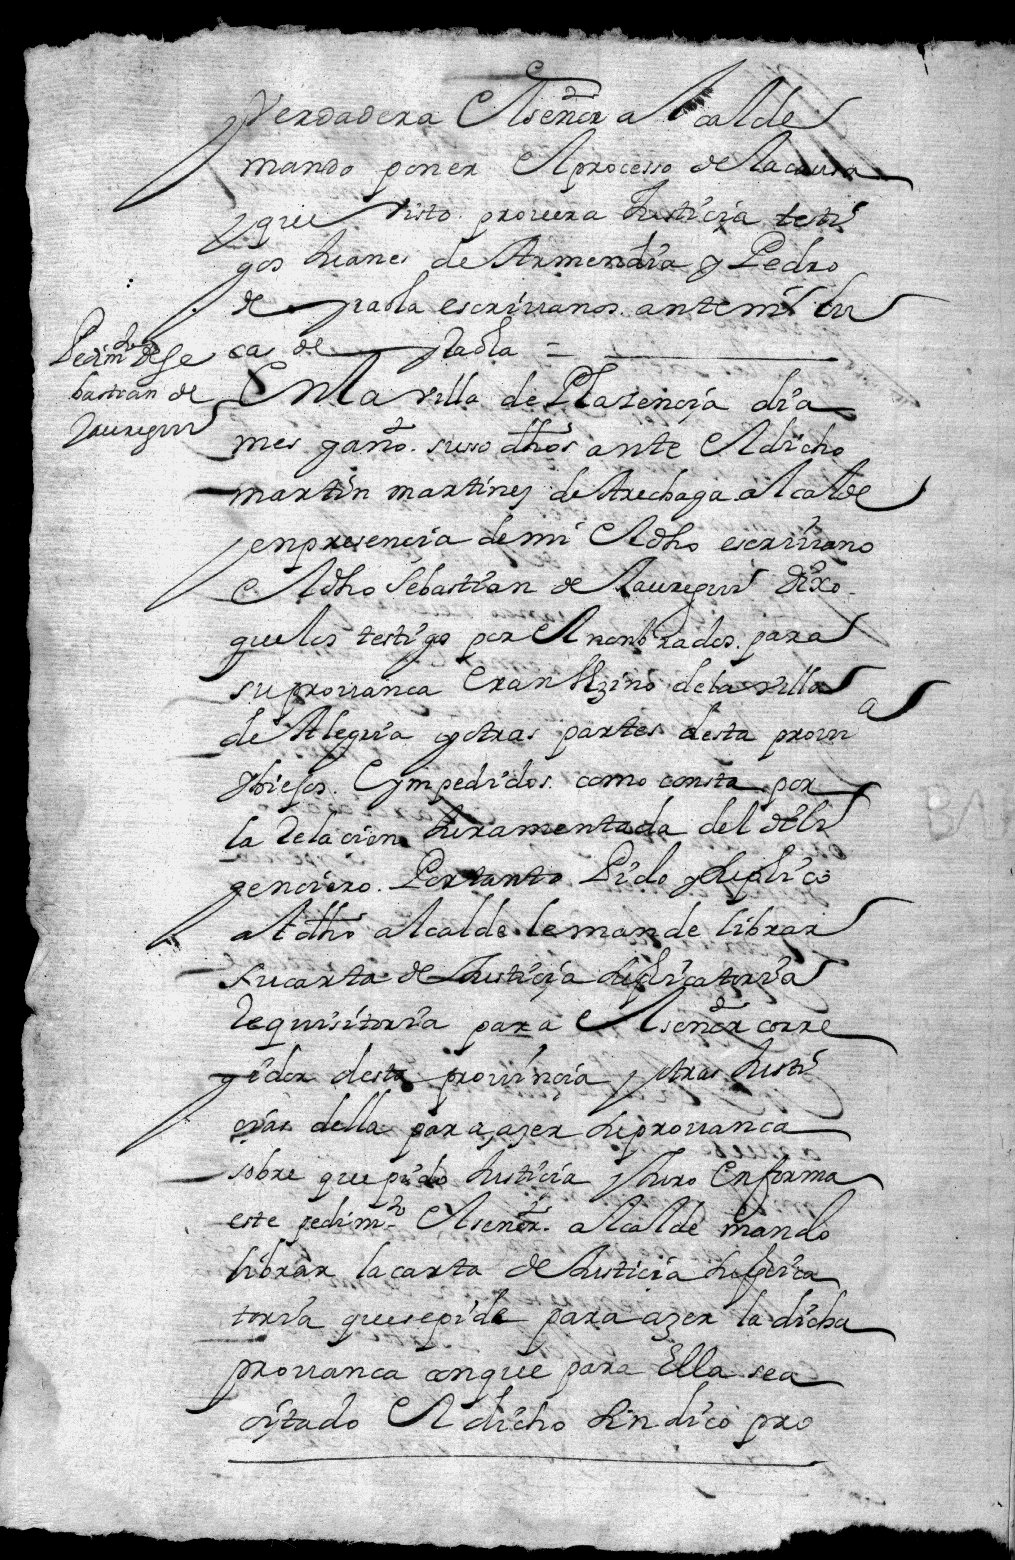 Verdadera El señor alcalde
mando poner El processo de la caussa
y que visto. prouera Justicia testi
gos Juanes de Armendia y Pedro
de yraola escriuanos. ante mi lu
cas de yraola =
Pedimto de Se
bastian de
Jauregui
En la villa de Plazencia dia
mes y año. suso dhos ante El dicho
martin martinez de Arechaga alcalde
y en presencia de mi El dho escriuano
El dho Sebastian de Jauregui dixo.
que los testigos por El nonbrados. para
su prouanca Eran Vezinos de la villa
de Alegria y otras partes desta prouin a
y biejos. E ympedidos. como consta por
la Relacion Juramentada del dili
genciero. Por tanto Pido y suplico
al dho alcalde le mande librar
su carta de Justicia suplicatoria
Requisitoria para El señor corre
gidor desta prouincia y otras Justi
cias della para azer su prouanca
sobre que pido Justicia y Juro En forma
este pedimto El señor. alcalde mando
librar la carta de Justicia suplica
toria que se pide para azer la dicha
prouanca con que para Ella sea
citado El dicho sindico pro